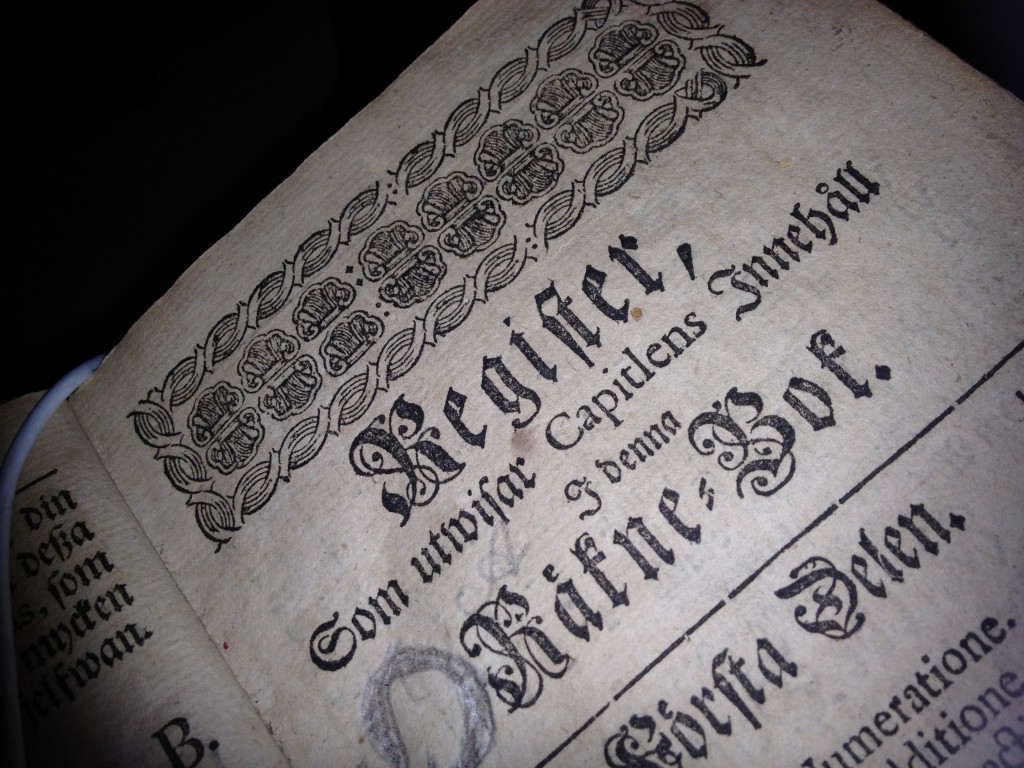 din
deßa
s, som
mycken
jelfwan.
B.
Register,
Som utwisar Capitlens Innehåll
I denna
Räkne-Bok.
Första Delen.
Numeratione.
dditione.